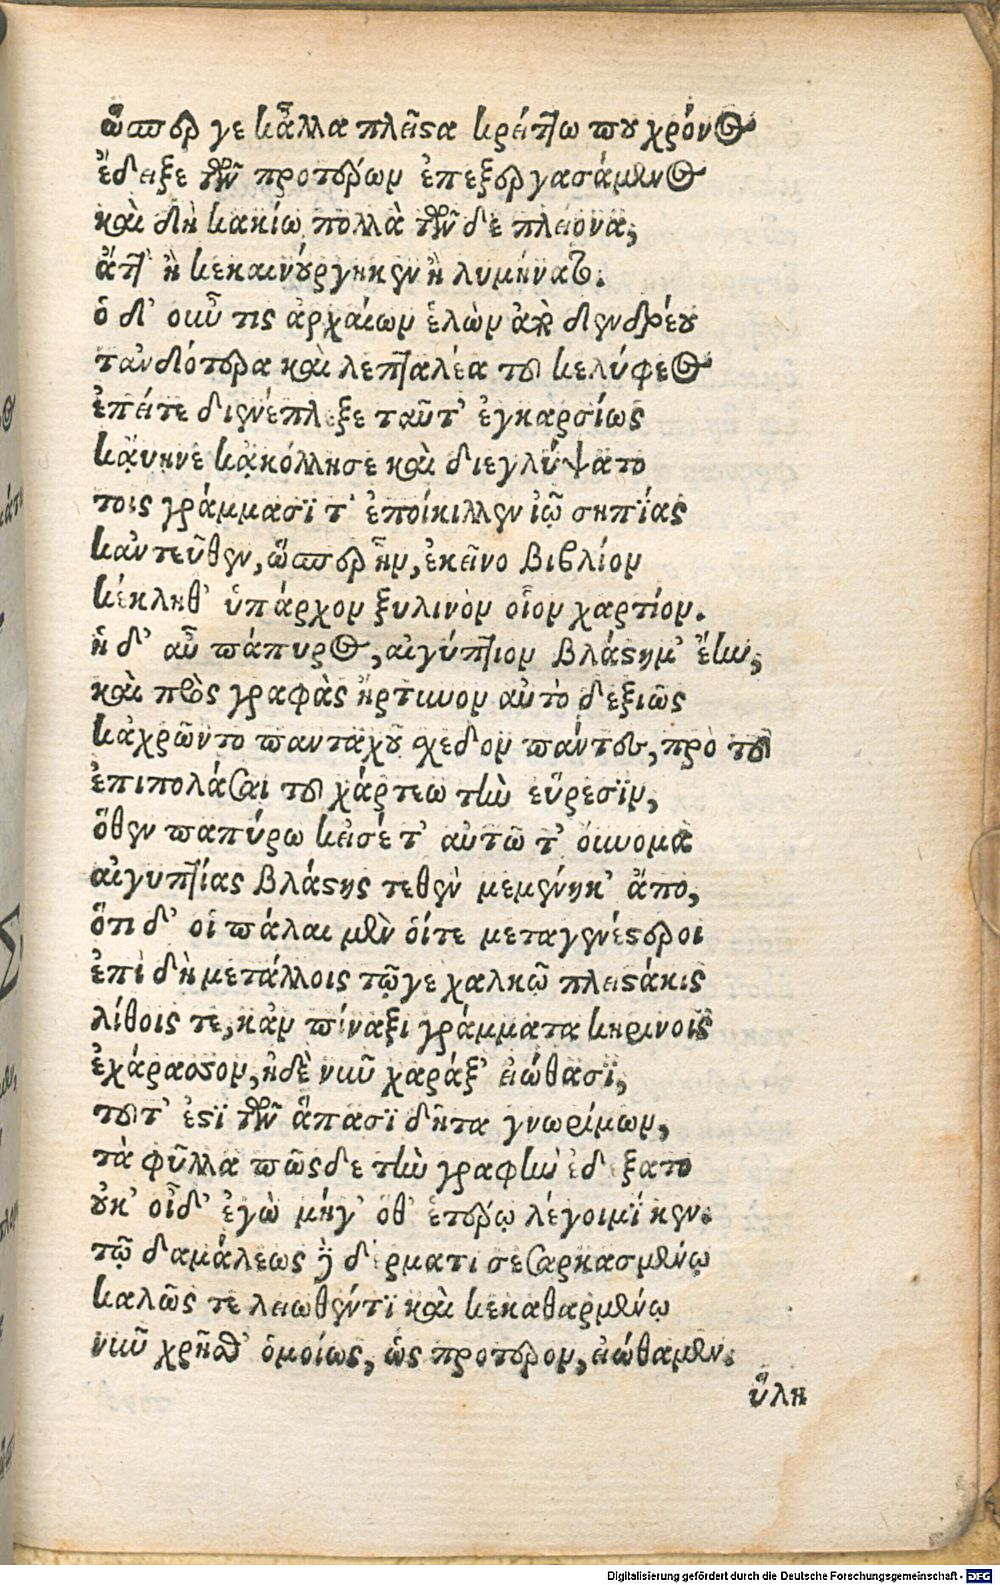 ὥσπερ γε κἆλλα πλεῖστα κρείττω που χρόνος
ἔδειξε τῶν προτέρων ἐπεξεργασάμενος
καὶ δὴ κακίω πολλὰ τῶνδε πλείονα,
ἅττ' ἢ κεκαινούργηκεν ἢ λυμήνατο.
ὁ δ' οὖν τις ἀρχαίων ἑλὼν ἀπὸ δενδρέου
τἀνδότερα καὶ λεπταλέα του κελύφεος
ἐπείτε διενέπλεξε ταῦτ' ἐγκαρσίως
κᾄυηνε κᾀκόλλησε καὶ διεγλύψατο
τοις γράμμασί τ' ἐποίκιλλεν ἰῷ σηπίας
κἀντεῦθεν, ὥσπερ ἦν, ἐκεῖνο βιβλίον
κέκληθ' ὑπάρχον ξυλινὸν οἷον χαρτίον.
ἡ δ' αὖ πάπυρος, αἰγύπτιον βλάστημ' ἔην,
καὶ πρὸς γραφὰς ἤρτυνον αὐτὸ δεξιῶς
κἀχρῶντο πανταχοῦ σχεδον πάντες, πρὸ του
ἐπιπολάσαι του χάρτεω τὴν εὕρεσιν,
ὅθεν παπύρω κεῖσέ τ' αὐτῶ τ' οὔνομα
αἰγυπτίας βλάστης τεθὲν μεμένηκ' ἄπο,
ὅτι δ' οἱ πάλαι μὲν οἵτε μεταγενέστεροι
ἐπὶ δὴ μετάλλοις τῷγε χαλκῷ πλειστάκις
λίθοις τε, κἀν πίναξι γράμματα κηρινοις
ἐχάρασσον, ἠδὲ νῦν χαράξ' εἰώθασι,
τοῦτ' ἐστὶ τῶν ἅπασι δῆτα γνωρίμων,
τὰ φῦλλα πῶςδε τὴν γραφὴν ἐδείξατο
οὐκ' οἶδ' ἐγὼ μήγ' ὅθ' ἑτέρῳ λέγοιμί κεν.
τῷ δαμάλεως ἢ δέρματι σεσαρκασμένῳ
καλῶς τε λειωθέντι καὶ κεκαθαρμένῳ
νῦν χρῆσθ' ὁμοίως, ὡς προτερον, εἰώθαμεν.
ὕλη
Digitalisierung gefördert durch die Deutsche Forschungsgemeinschaft - DFG